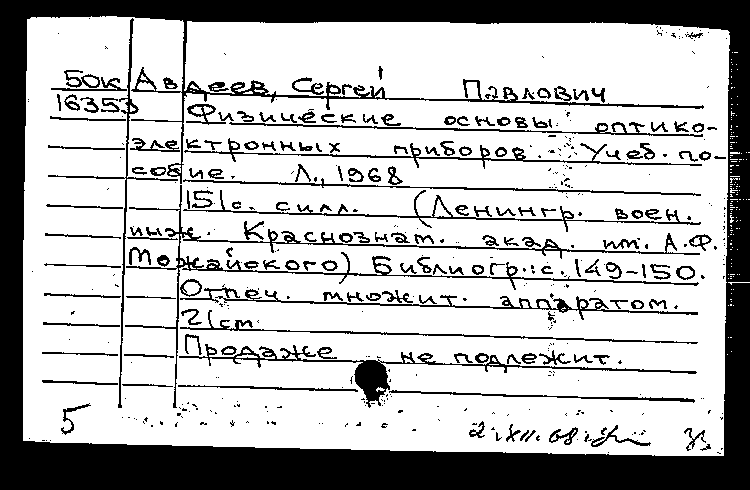 50к Авдеев, Сергей Павлович
16353 Физические основы оптико-
электронных приборов. Учеб. по-
собие. Л., 1968
151с. силл. (Ленингр. воен.
инж. Краснознам. акад. им. А.Ф.
Можайского) Библиогр.: с. 149-150.
Отпеч. множит. аппаратом.
21см.
Продаже не подлежит.
5 2.XII.68.